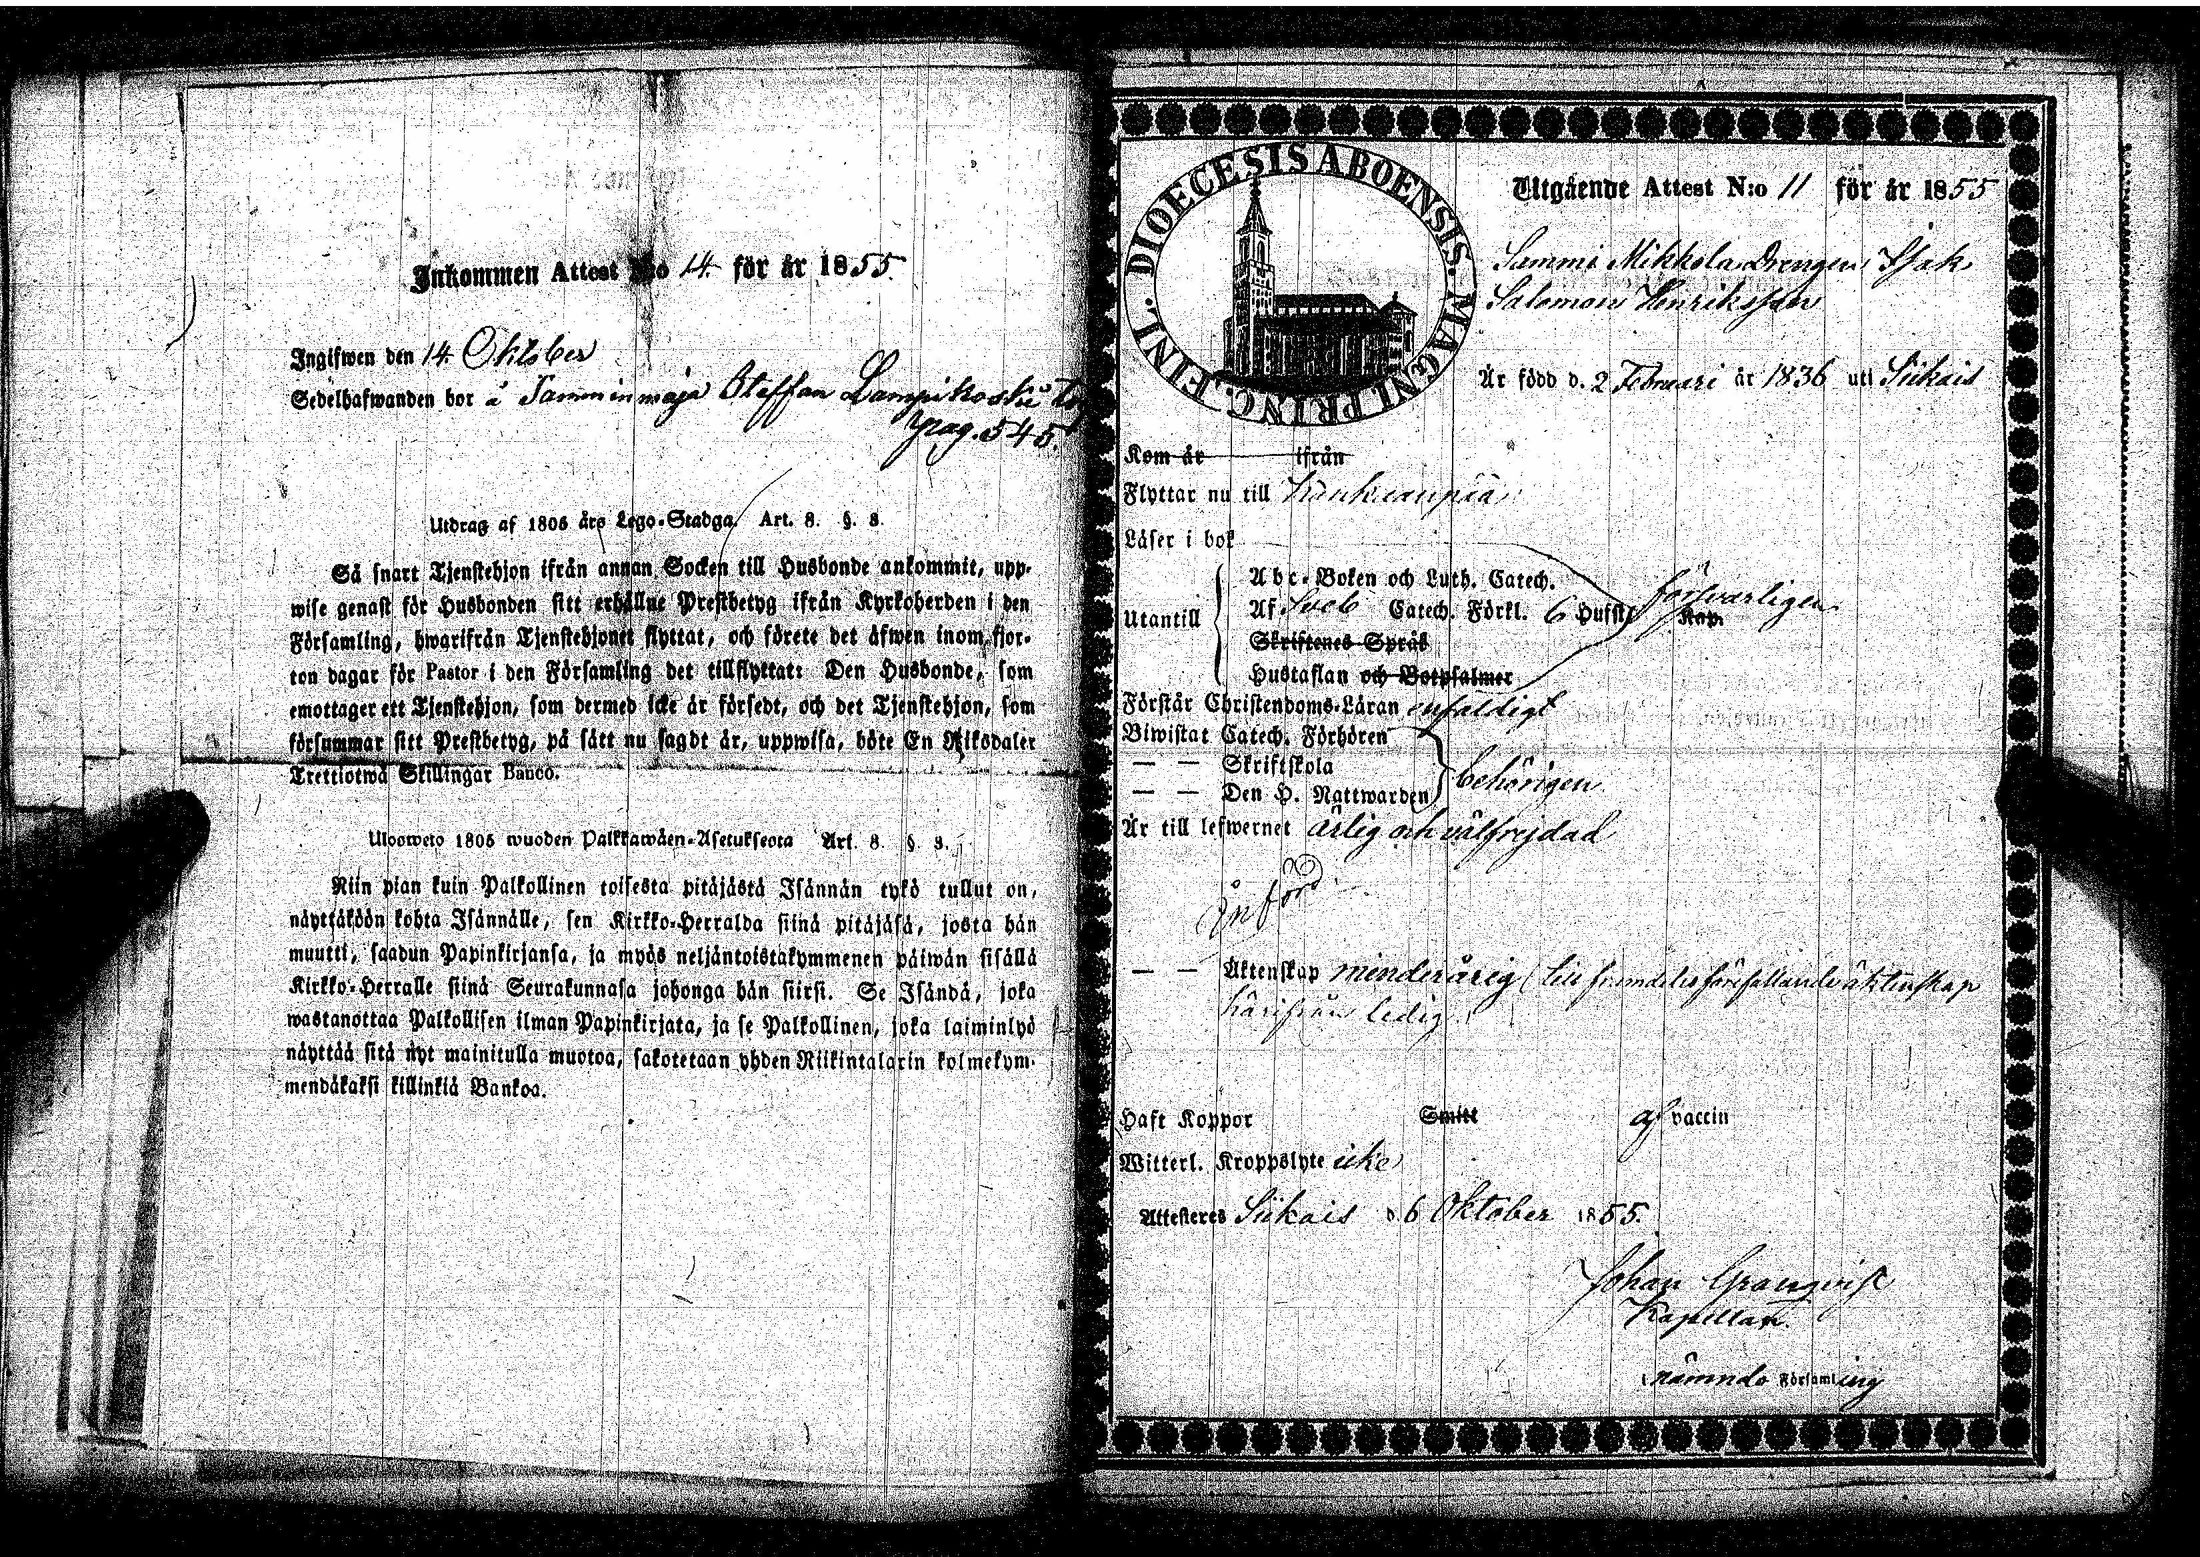 Inkommen Attest N:o 14 för år 1855.
Ingifwen den 14 Oktober
Sedelhafwanden bor å Tamminmaja Steffan Lampikoski
pag. 545.
Utdrag af 1805 års Lego-Stadga. Art. 8. §. 8.
Så snart Tjenstehjon ifrån annan Socken till Husbonde ankommit, upp-
wise genast för Husbonden sitt erhållne Prestbetyg ifrån Kyrkoherden i den
Församling, hwarifrån Tjenstehjonet flyttat, och förete det äfwen inom fjor-
ton dagar för Pastor i den Församling det tillflyttat: Den Husbonde, som
emottager ett Tjenstehjon, som dermed icke är försedt, och det Tjenstehjon, som
försummar sitt Prestbetyg, på sätt nu sagdt är, uppwisa, böte En Riksdaler
Trettiotwå Skillingar Banco.
Ulosweto 1805 wuoden Palkkawäen-Asetuksesta Art. 8. § 8.
Niin pian kuin Palkollinen toisesta pitäjästä Isännän tykö tullut on,
näyttäköön kohta Isännälle, sen Kirkko-Herralda siinä pitäjäsä, josta hän
muutti, saadun Papinkirjansa, ja myös neljäntoistakymmenen päiwän sisällä
Kirkko-Herralle siinä Seurakunnasa johonga hän siirsi. Se Isändä, joka
wastanottaa Palkollisen ilman Papinkirjata, ja se Palkollinen, joka laiminlyö
näyttää sitä nyt mainitulla muotoa, sakotetaan yhden Riikintalarin kolmekym-
mendäkaksi killinkiä Bankoa.
DIOECESIS ABOENSIS. MAGNI. PRINC. FINL.
Utgående Attest N:o 11 för år 1855
Sammi Mikkola Drengen Isak
Salomon Henriksson
Är född d. 2 Februari år 1836 uti Siikais
Kom år ifrån
Flyttar nu till Kankaanpää
Läser i bok
Utantill
Abc-Boken och Luth. Catech.
Af Sveb Catech. Förkl. 6 Hufst. Kap. försvarligen
Skriftenes Språk
Hustaflan och Botpsalmer
Förstår Christendoms-Läran enfaldigt
Biwistat Catech. Förhören
— — Skriftskola
— — Den H. Nattwarden behörigen
Är till lefwernet ärlig och välfrejdad
Införd
— — Äktenskap minderårig (till framdeles förefallande äktenskap
härifrån ledig
Haft Koppor Smitt af vaccin
Witterl. Kroppslyte icke
Attesteres Siikais d. 6 Oktober 1855.
Johan Granqvist
Kapellan.
nämnde Församling